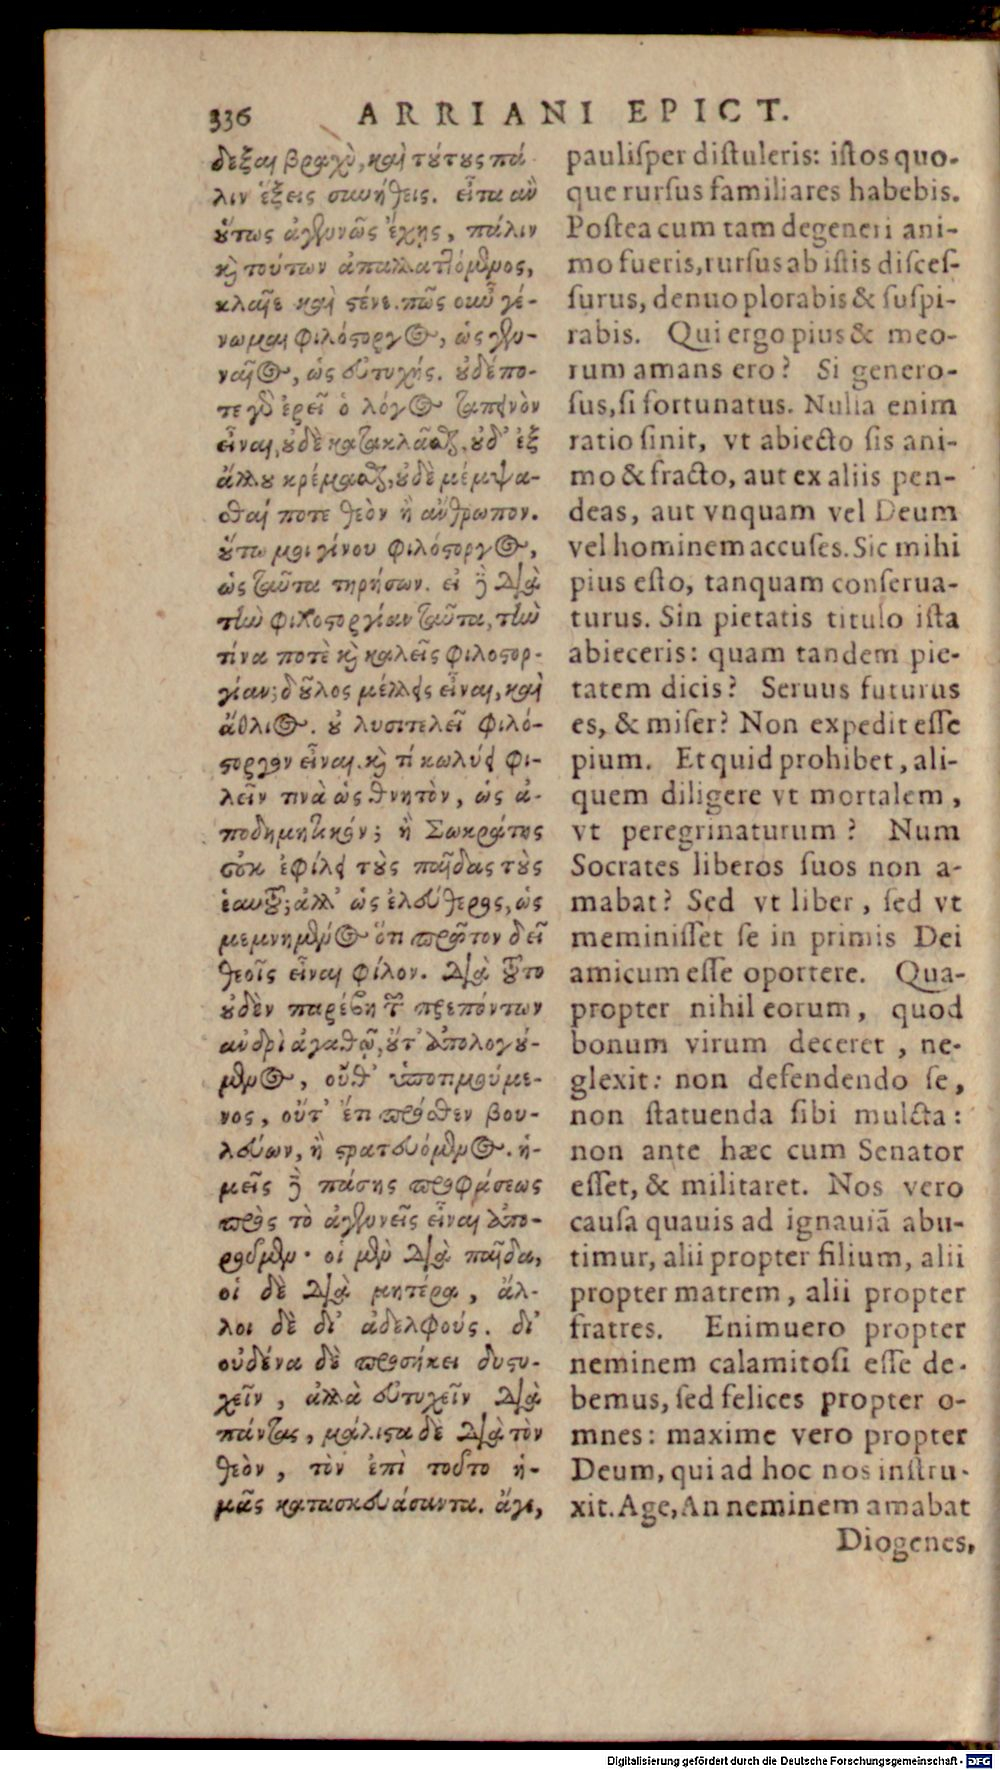 336 ARRIANI EPICT.
δεξαι βραχὺ, καὶ τούτους πά-
λιν ἕξεις συνήθεις. εἶτα ἂν
οὕτως ἀγεννῶς ἔχῃς, πάλιν
καὶ τούτων ἀπαλλαττόμενος,
κλαῖε καὶ στένε. πῶς οὖν γέ-
νωμαι φιλόστοργος, ὡς γεν-
ναῖος, ὡς εὐτυχής. οὐδέπο-
τε γὰρ ἐρεῖ ὁ λόγος ταπεινὸν
εἶναι, οὐδὲ κατακλᾶσθαι, οὐδ' ἐξ
ἄλλου κρέμασθαι, οὐδὲ μέμψα-
σθαί ποτε θεὸν ἢ ἄνθρωπον.
οὕτω μοι γίνου φιλόστοργος,
ὡς ταῦτα τηρήσων. εἰ δὲ διὰ
τὴν φιλοστοργίαν ταῦτα, τὴν
τίνα ποτὲ καὶ καλεῖς φιλοστορ-
γίαν; δοῦλος μέλλεις εἶναι, καὶ
ἄθλιος. οὐ λυσιτελεῖ φιλό-
στοργον εἶναι. καὶ τί κωλύει φι-
λεῖν τινὰ ὡς θνητὸν, ὡς ἀ-
ποδημητικόν; ἢ Σωκράτης
οὐκ ἐφίλει τοὺς παῖδας τοὺς
ἑαυτοῦ; ἀλλ' ὡς ἐλεύθερος, ὡς
μεμνημένος ὅτι πρῶτον δεῖ
θεοῖς εἶναι φίλον. διὰ τοῦτο
οὐδὲν παρέβη τῶν πρεπόντων
ἀνδρὶ ἀγαθῷ, οὔτ' ἀπολογού-
μενος, οὔθ' ὑποτιμούμε-
νος, οὔτ' ἔτι πρόσθεν βου-
λεύων, ἢ στρατευόμενος. ἡ-
μεῖς δὲ πάσης προφάσεως
πρὸς τὸ ἀγεννεῖς εἶναι ἀπο-
ροῦμεν· οἱ μὲν διὰ παῖδα,
οἱ δὲ διὰ μητέρα, ἄλ-
λοι δὲ δι' ἀδελφούς. δι'
οὐδένα δὲ προσήκει δυστυ-
χεῖν, ἀλλὰ εὐτυχεῖν διὰ
πάντας, μάλιστα δὲ διὰ τὸν
θεὸν, τὸν ἐπὶ τοῦτο ἡ-
μᾶς κατασκευάσαντα. ἄγε,
paulisper distuleris: istos quo-
que rursus familiares habebis.
Postea cum tam degeneri ani-
mo fueris, rursus ab istis disces-
surus, denuo plorabis & suspi-
rabis. Qui ergo pius & meo-
rum amans ero? Si genero-
sus, si fortunatus. Nulla enim
ratio sinit, vt abiecto sis ani-
mo & fracto, aut ex aliis pen-
deas, aut vnquam vel Deum
vel hominem accuses. Sic mihi
pius esto, tanquam conserua-
turus. Sin pietatis titulo ista
abieceris: quam tandem pie-
tatem dicis? Seruus futurus
es, & miser? Non expedit esse
pium. Et quid prohibet, ali-
quem diligere vt mortalem,
vt peregrinaturum? Num
Socrates liberos suos non a-
mabat? Sed vt liber, sed vt
meminisset se in primis Dei
amicum esse oportere. Qua-
propter nihil eorum, quod
bonum virum deceret, ne-
glexit: non defendendo se,
non statuenda sibi mulcta:
non ante hæc cum Senator
esset, & militaret. Nos vero
causa quauis ad ignauiā abu-
timur, alii propter filium, alii
propter matrem, alii propter
fratres. Enimuero propter
neminem calamitosi esse de-
bemus, sed felices propter o-
mnes: maxime vero propter
Deum, qui ad hoc nos instru-
xit. Age, An neminem amabat
Diogenes,
Digitalisierung gefördert durch die Deutsche Forschungsgemeinschaft - DFG